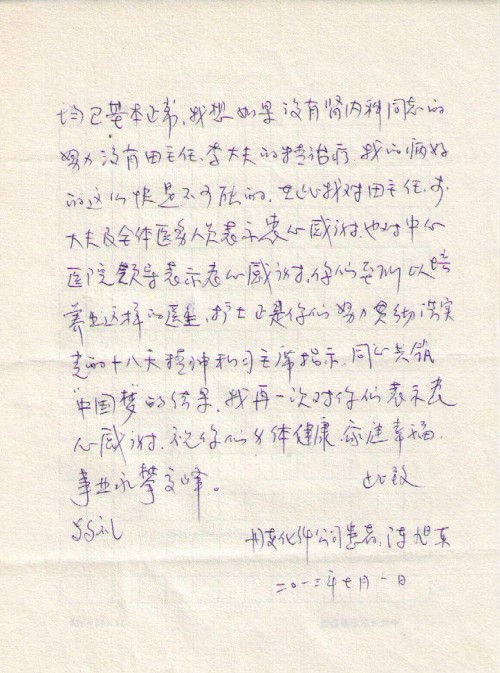 均已基本正常，我想如果没有肾内科同志的
努力没有田主任、李大夫的精治疗，我的病好
的这么快是不可能的，在此我对田主任、李
大夫及全体医务人员表示衷心感谢，也对中心
医院领导表示衷心感谢，你们所以培
养出这样的医生，护士正是你们努力贯彻落实
党的十八大精神和习主席指示，同心共筑
中国梦的结果，我再一次对你们表示衷
心感谢，祝你们身体健康，家庭幸福，
事业永攀高峰。 此致
敬礼
公司患者：陈旭东
二〇一三年七月一日